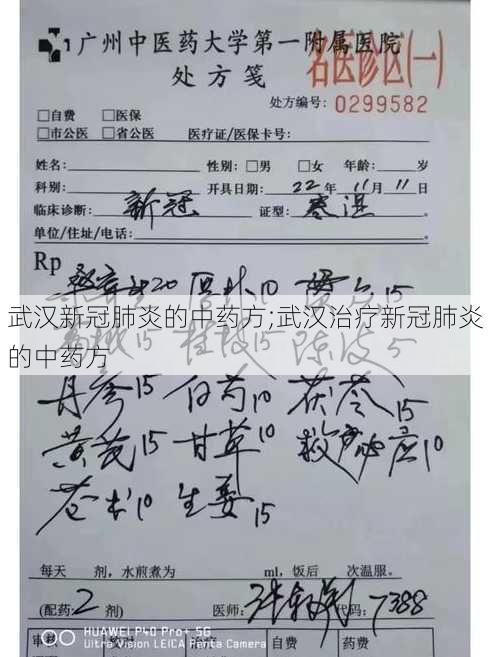 广州中医药大学第一附属医院
名医诊区(一)
处方笺
处方编号: 0299582
□自费 □医保
□市公医 □省公医 医疗证/医保卡号:
姓名: 性别: □男 □女 年龄: 岁
科别: 开具日期: 22年11月11日
临床诊断: 新冠 证型: 寒湿
单位/住址/电话:
Rp
20 厚朴10 15
武汉新冠肺炎的中药方;武汉治疗新冠肺炎
的中药方
15 桂枝5 陈皮5
丹参15 白芍10 茯苓15
黄芪15 甘草10 10
苍术10 生姜15
每天 剂，水煎煮为 ml，饭后 次温服。
(配药: 2 剂) 医师: 代码: 7388
审核 自费 药费
HUAWEI P40 Pro+ 5G
Ultra Vision LEICA Penta Camera